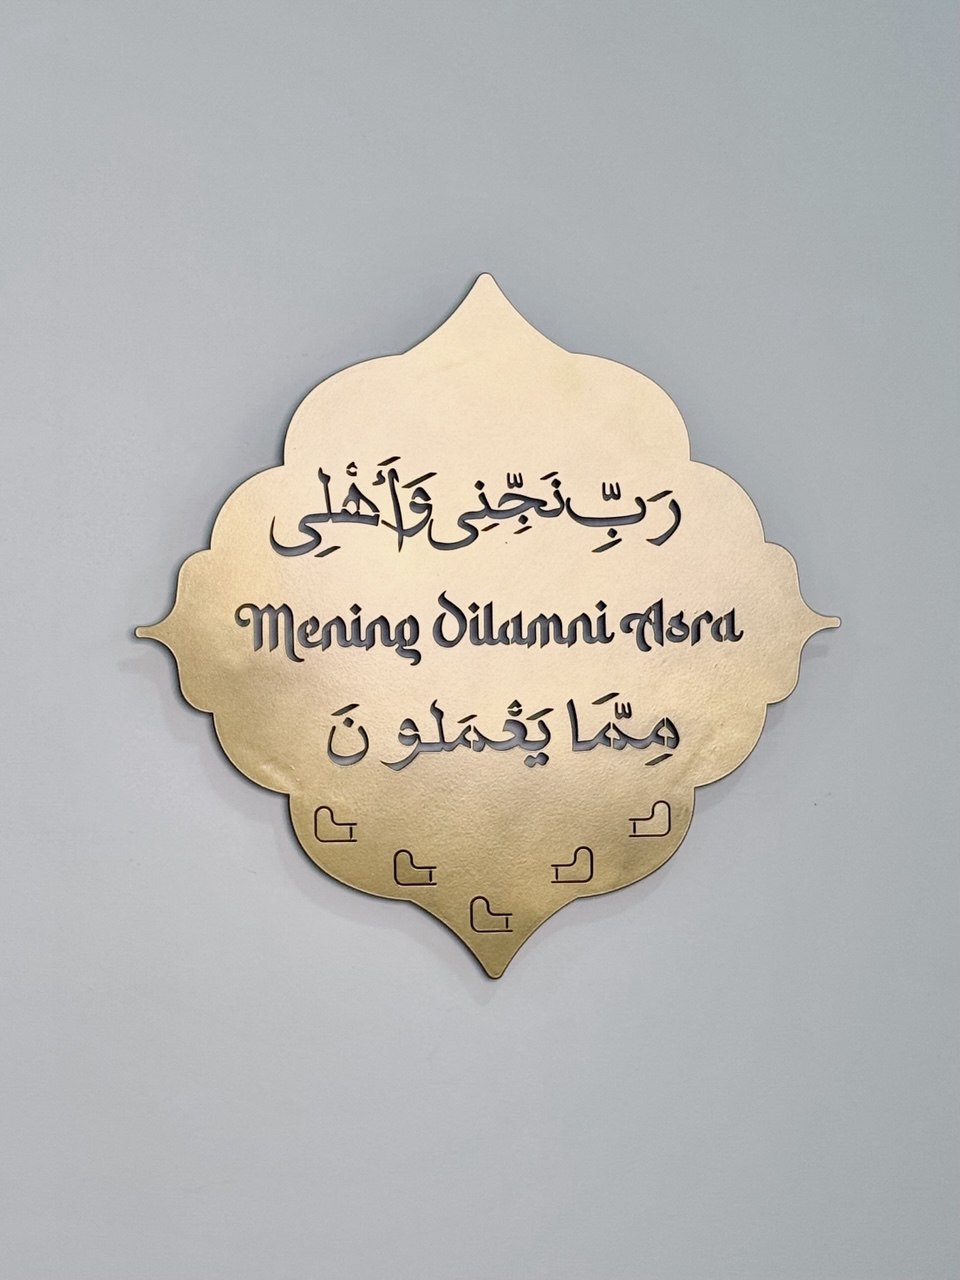 رَبِّ نَجِّنِى وَأَهْلِى
Mening Dilamni Asra
مِمَّا يَعْمَلُو نَ